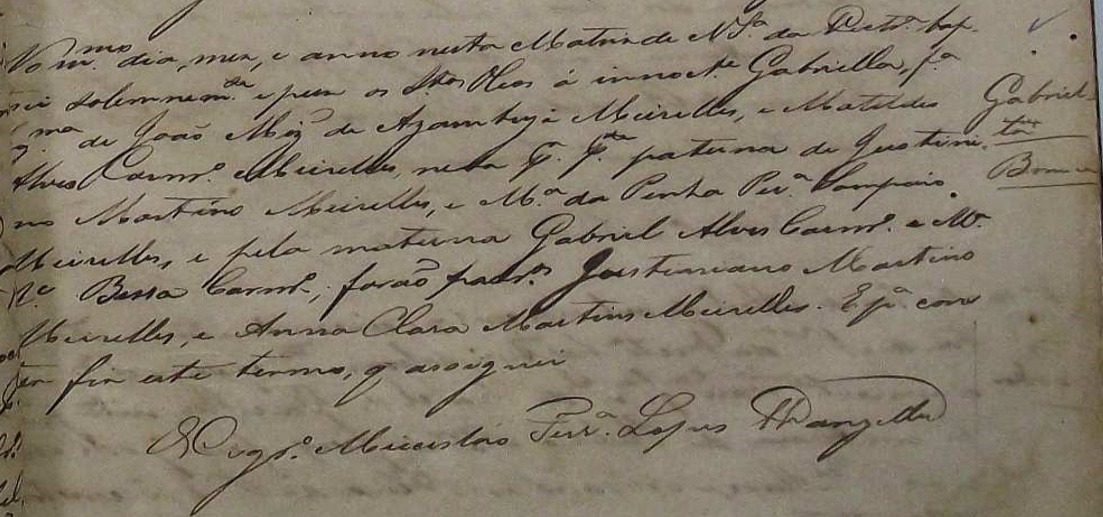 No m.mo dia, mez, e anno nesta Matriz de N. S.ª da Pied.e bap-
tisei solemnem.te e puz os S.tos Oleos á innoc.te Gabriella, f.ª
de João Miz de Azambuja Meirelles, e Matildes
Alves Carnr.º Meirelles, neta p. p.te paterna de Justini-
no Martins Meirelles, e M.ª da Penha Per.ª Sampaio
Meirelles, e pela materna Gabriel Alves Carnr.º e M.ª
Bessa Carnr.º; forão padr.os Justiniano Martins
Meirelles, e Anna Clara Martins Meirelles. E p.ª cons-
tar fiz este termo, q assignei
O Vigr.º Miceslão Ferr.ª Lopes Wanzeller
Gabriel-
la